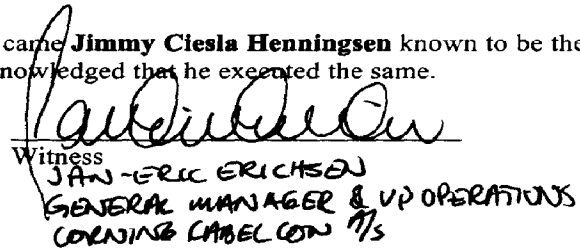 came Jimmy Ciesla Henningsen known to be the
nowledged that he executed the same.
Witness
JAN-ERIC ERICHSEN
GENERAL MANAGER & VP OPERATIONS
CORNING CABELCON A/S